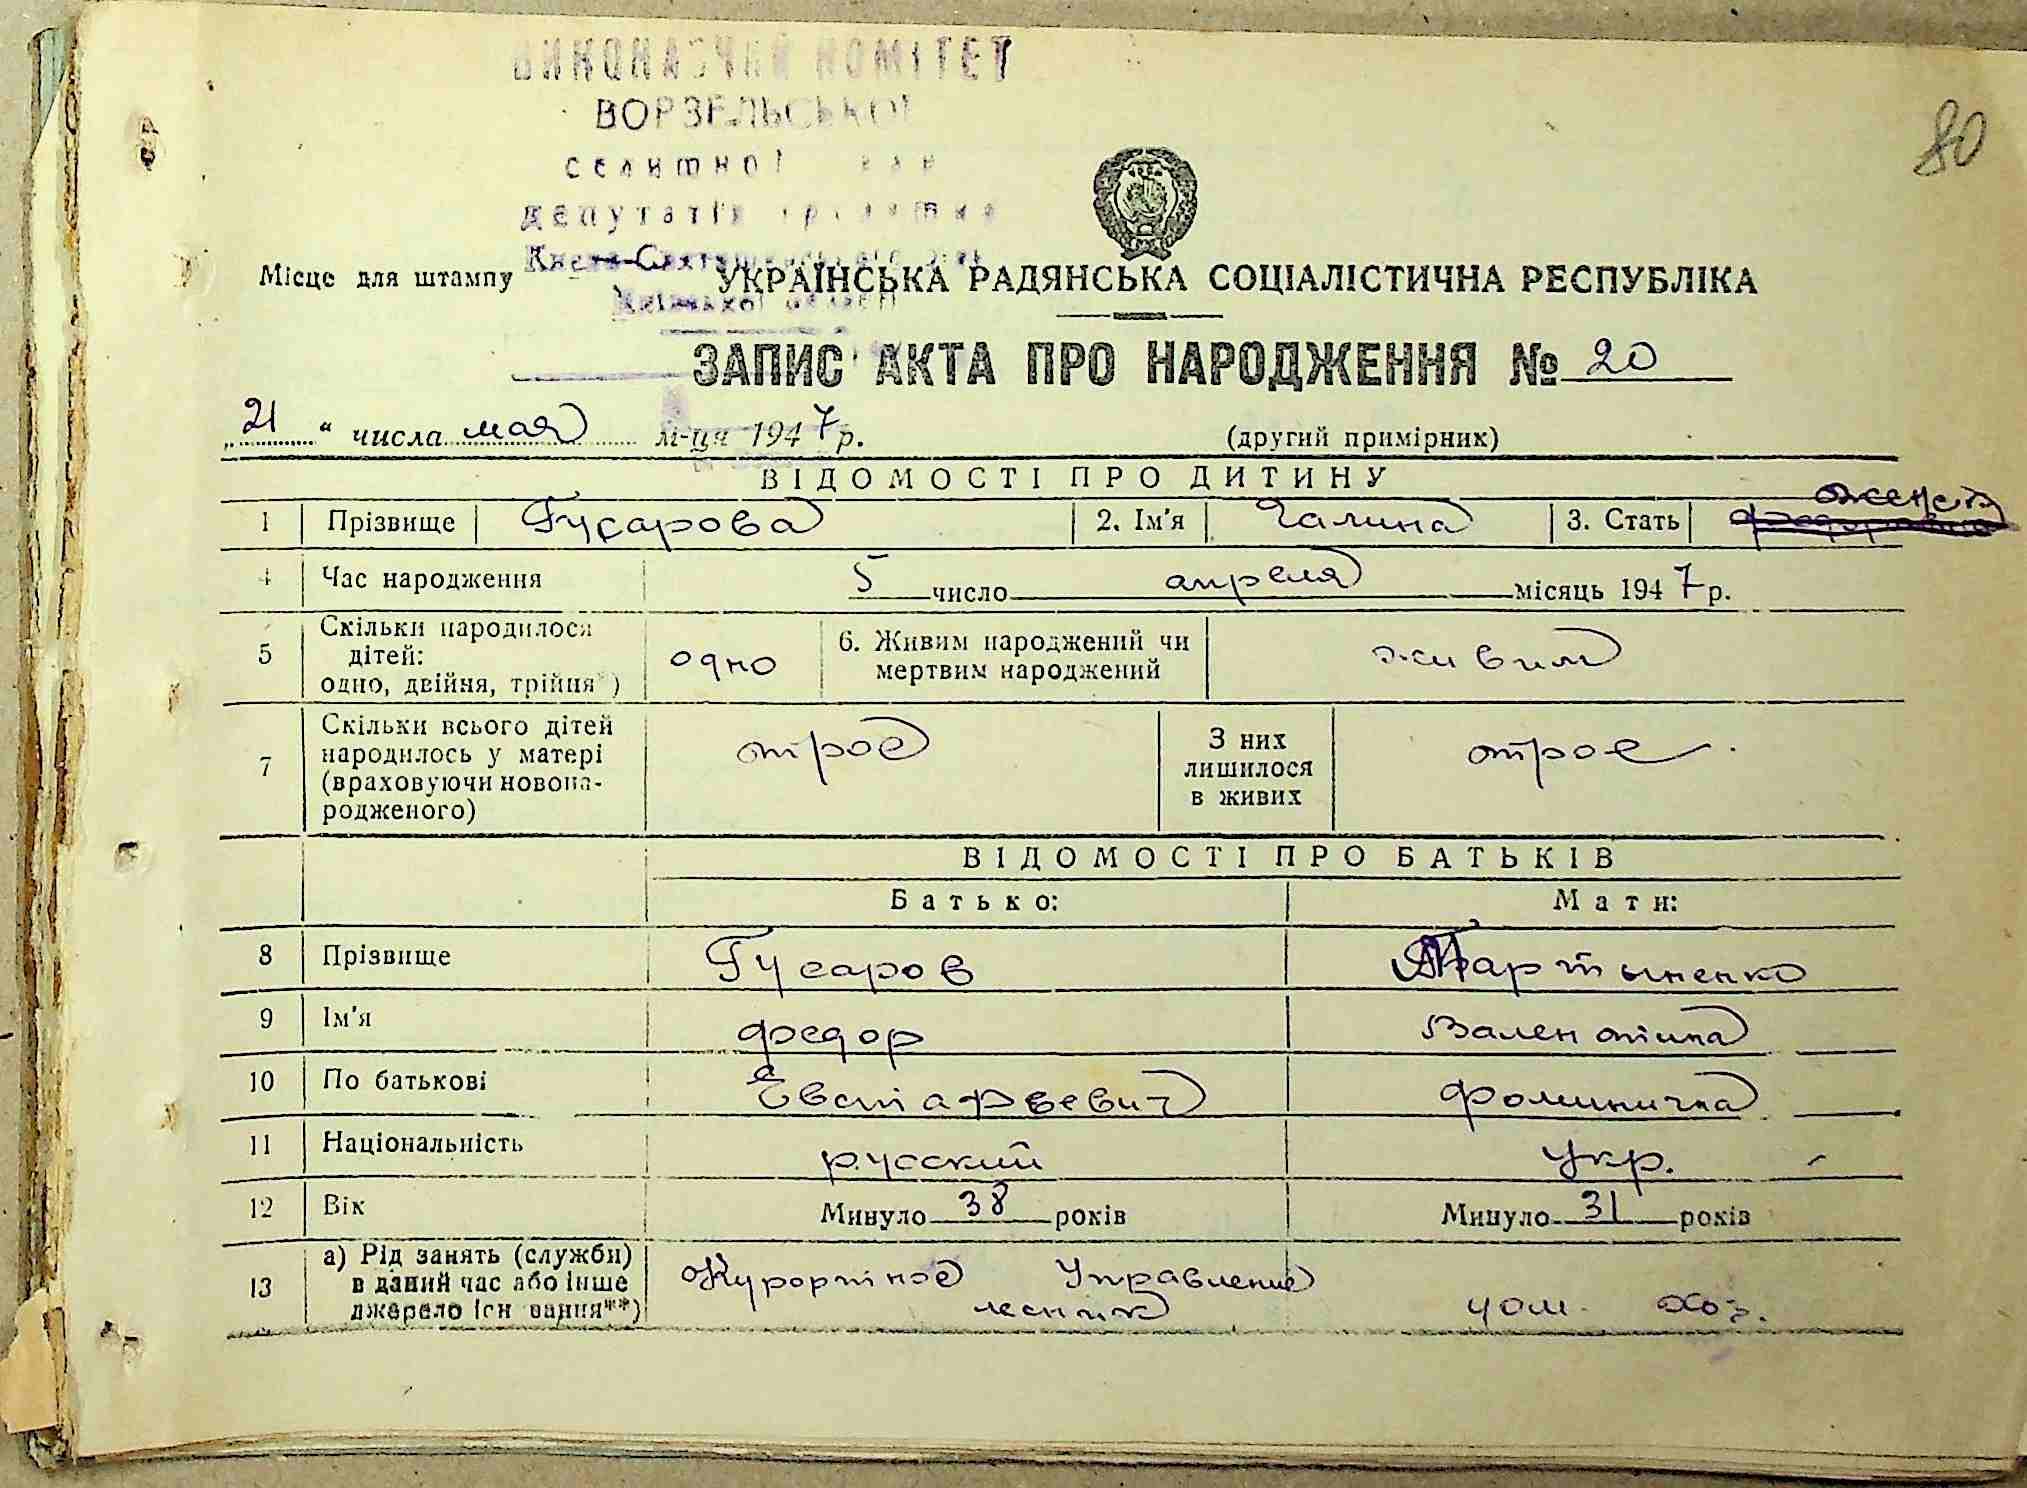 ВИКОНАВЧИЙ КОМІТЕТ
ВОРЗЕЛЬСЬКОЇ
селищної
депутатів
80
Місце для штампу
УКРАЇНСЬКА РАДЯНСЬКА СОЦІАЛІСТИЧНА РЕСПУБЛІКА
ЗАПИС АКТА ПРО НАРОДЖЕННЯ № 20
„21“ числа мая м-ця 1947 р. (другий примірник)
ВІДОМОСТІ ПРО ДИТИНУ
1 Прізвище Гусарова 2. Ім'я Галина 3. Стать женск
4 Час народження 5 число апреля місяць 1947 р.
5 Скільки народилося дітей: одно, двійня, трійня*) одно 6. Живим народжений чи мертвим народжений живим
7 Скільки всього дітей народилось у матері (враховуючи новонародженого) трое З них лишилося в живих трое
ВІДОМОСТІ ПРО БАТЬКІВ
Батько: Мати:
8 Прізвище Гусаров Мартыненко
9 Ім'я Федор Валентина
10 По батькові Евстафьевич Фоминична
11 Національність русский укр.
12 Вік Минуло 38 років Минуло 31 років
13 а) Рід занять (служби) в даний час або інше джерело існування**) Курортное Управление лесник дом. хоз.